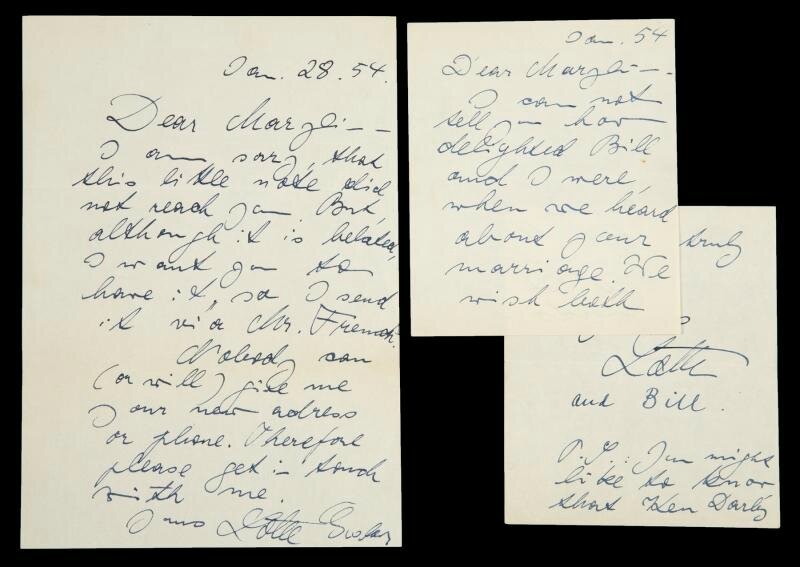 Jan. 28. 54.
Dear Marylin —
I am sorry, that
this little note did
not reach you. But,
although it is belated,
I want you to
have it, so I send
it via Mr. French.
Nobody can
(or will) give me
your new adress
or phone. Therefore
please get in touch
with me.
Yours Lotte Goslar
Jan. 54
Dear Marylin —
I can not
tell you how
delighted Bill
and I were,
when we heard
about your
marriage. We
wish both
truly
Lotte
and Bill.
P.S.: You might
like to know
that Ken Darby